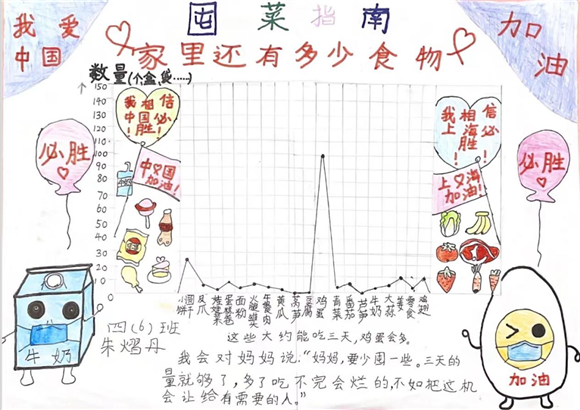 囤菜指南
我爱
中国
加
油
家里还有多少食物
数量(个,盒,袋……)
150
140
130
120
110
100
90
80
70
60
50
40
30
20
10
0
我相信
中国必
胜!
中国
加油!
我相信
上海必
胜!
上海
加油!
必胜
必胜
面粉
午餐肉
黄瓜
鸡蛋
青菜
番茄
牛奶
大蒜
四(6)班
朱熠丹
牛奶
加油
这些大约能吃三天,鸡蛋会多。
我会对妈妈说:“妈妈,要少囤一些。三天的
量就够了,多了吃不完会烂的,不如把这机
会让给有需要的人。”